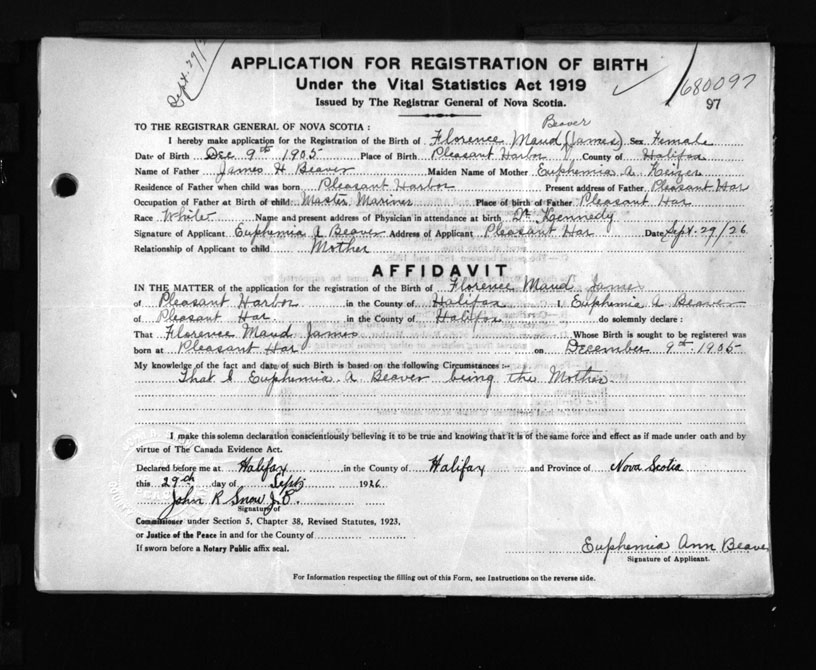 Sept. 29/2
APPLICATION FOR REGISTRATION OF BIRTH
Under the Vital Statistics Act 1919
Issued by The Registrar General of Nova Scotia.
680097
97
TO THE REGISTRAR GENERAL OF NOVA SCOTIA :
Beaver
I hereby make application for the Registration of the Birth of Florence Maud (James) Sex Female
Date of Birth Dec 9th 1905 Place of Birth Pleasant Harbor County of Halifax
Name of Father James H Beaver Maiden Name of Mother Euphemia A. Keizer
Residence of Father when child was born Pleasant Harbor Present address of Father Pleasant Har
Occupation of Father at Birth of child Master Mariner Place of birth of Father Pleasant Har
Race White Name and present address of Physician in attendance at birth Dr Kennedy
Signature of Applicant Euphemia A Beaver Address of Applicant Pleasant Har Date Sept. 29/26
Relationship of Applicant to child Mother
AFFIDAVIT
IN THE MATTER of the application for the registration of the Birth of Florence Maud James
of Pleasant Harbor in the County of Halifax I, Euphemia A Beaver
of Pleasant Har in the County of Halifax do solemnly declare :
That Florence Maud James Whose Birth is sought to be registered was
born at Pleasant Har on December 9th 1905
My knowledge of the fact and date of such Birth is based on the following Circumstances :—
That I Euphemia. A Beaver being the Mother.
I make this solemn declaration conscientiously believing it to be true and knowing that it is of the same force and effect as if made under oath and by
virtue of The Canada Evidence Act.
Declared before me at Halifax in the County of Halifax and Province of Nova Scotia
this 29th day of Sept 1926
John R Snow J.P.
Signature of
Commissioner under Section 5, Chapter 38, Revised Statutes, 1923,
or Justice of the Peace in and for the County of
If sworn before a Notary Public affix seal.
Euphemia Ann Beaver
Signature of Applicant.
For Information respecting the filling out of this Form, see Instructions on the reverse side.